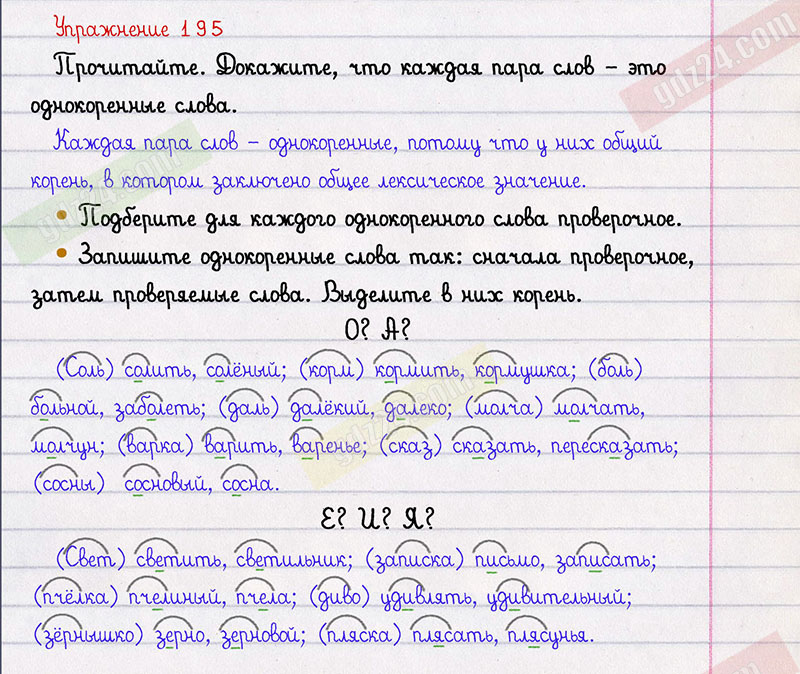 Упражнение 195
Прочитайте. Докажите, что каждая пара слов – это
однокоренные слова.
Каждая пара слов – однокоренные, потому что у них общий
корень, в котором заключено общее лексическое значение.
• Подберите для каждого однокоренного слова проверочное.
• Запишите однокоренные слова так: сначала проверочное,
затем проверяемые слова. Выделите в них корень.
О? А?
(Соль) солить, солёный; (корм) кормить, кормушка; (боль)
больной, заболеть; (даль) далёкий, далеко; (молча) молчать,
молчун; (варка) варить, варенье; (сказ) сказать, пересказать;
(сосны) сосновый, сосна.
Е? И? Я?
(Свет) светить, светильник; (записка) письмо, записать;
(пчёлка) пчелиный, пчела; (диво) удивлять, удивительный;
(зёрнышко) зерно, зерновой; (пляска) плясать, плясунья.
gdz24.com
gdz24.com
gdz24.com